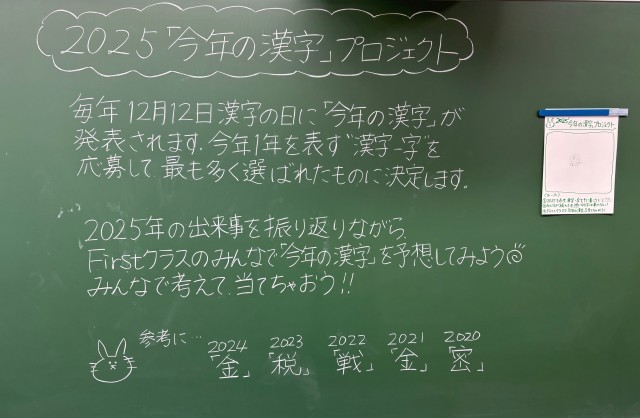 2025「今年の漢字」プロジェクト
毎年12月12日漢字の日に「今年の漢字」が
発表されます.今年1年を表す"漢字一字"を
応募して、最も多く選ばれたものに決定します。
2025年の出来事を振り返りながら
Firstクラスのみんなで「今年の漢字」を予想してみよう
みんなで考えて、当てちゃおう!!
参考に…
2024 2023 2022 2021 2020
「金」「税」「戦」「金」「密」
2025「今年の漢字」プロジェクト